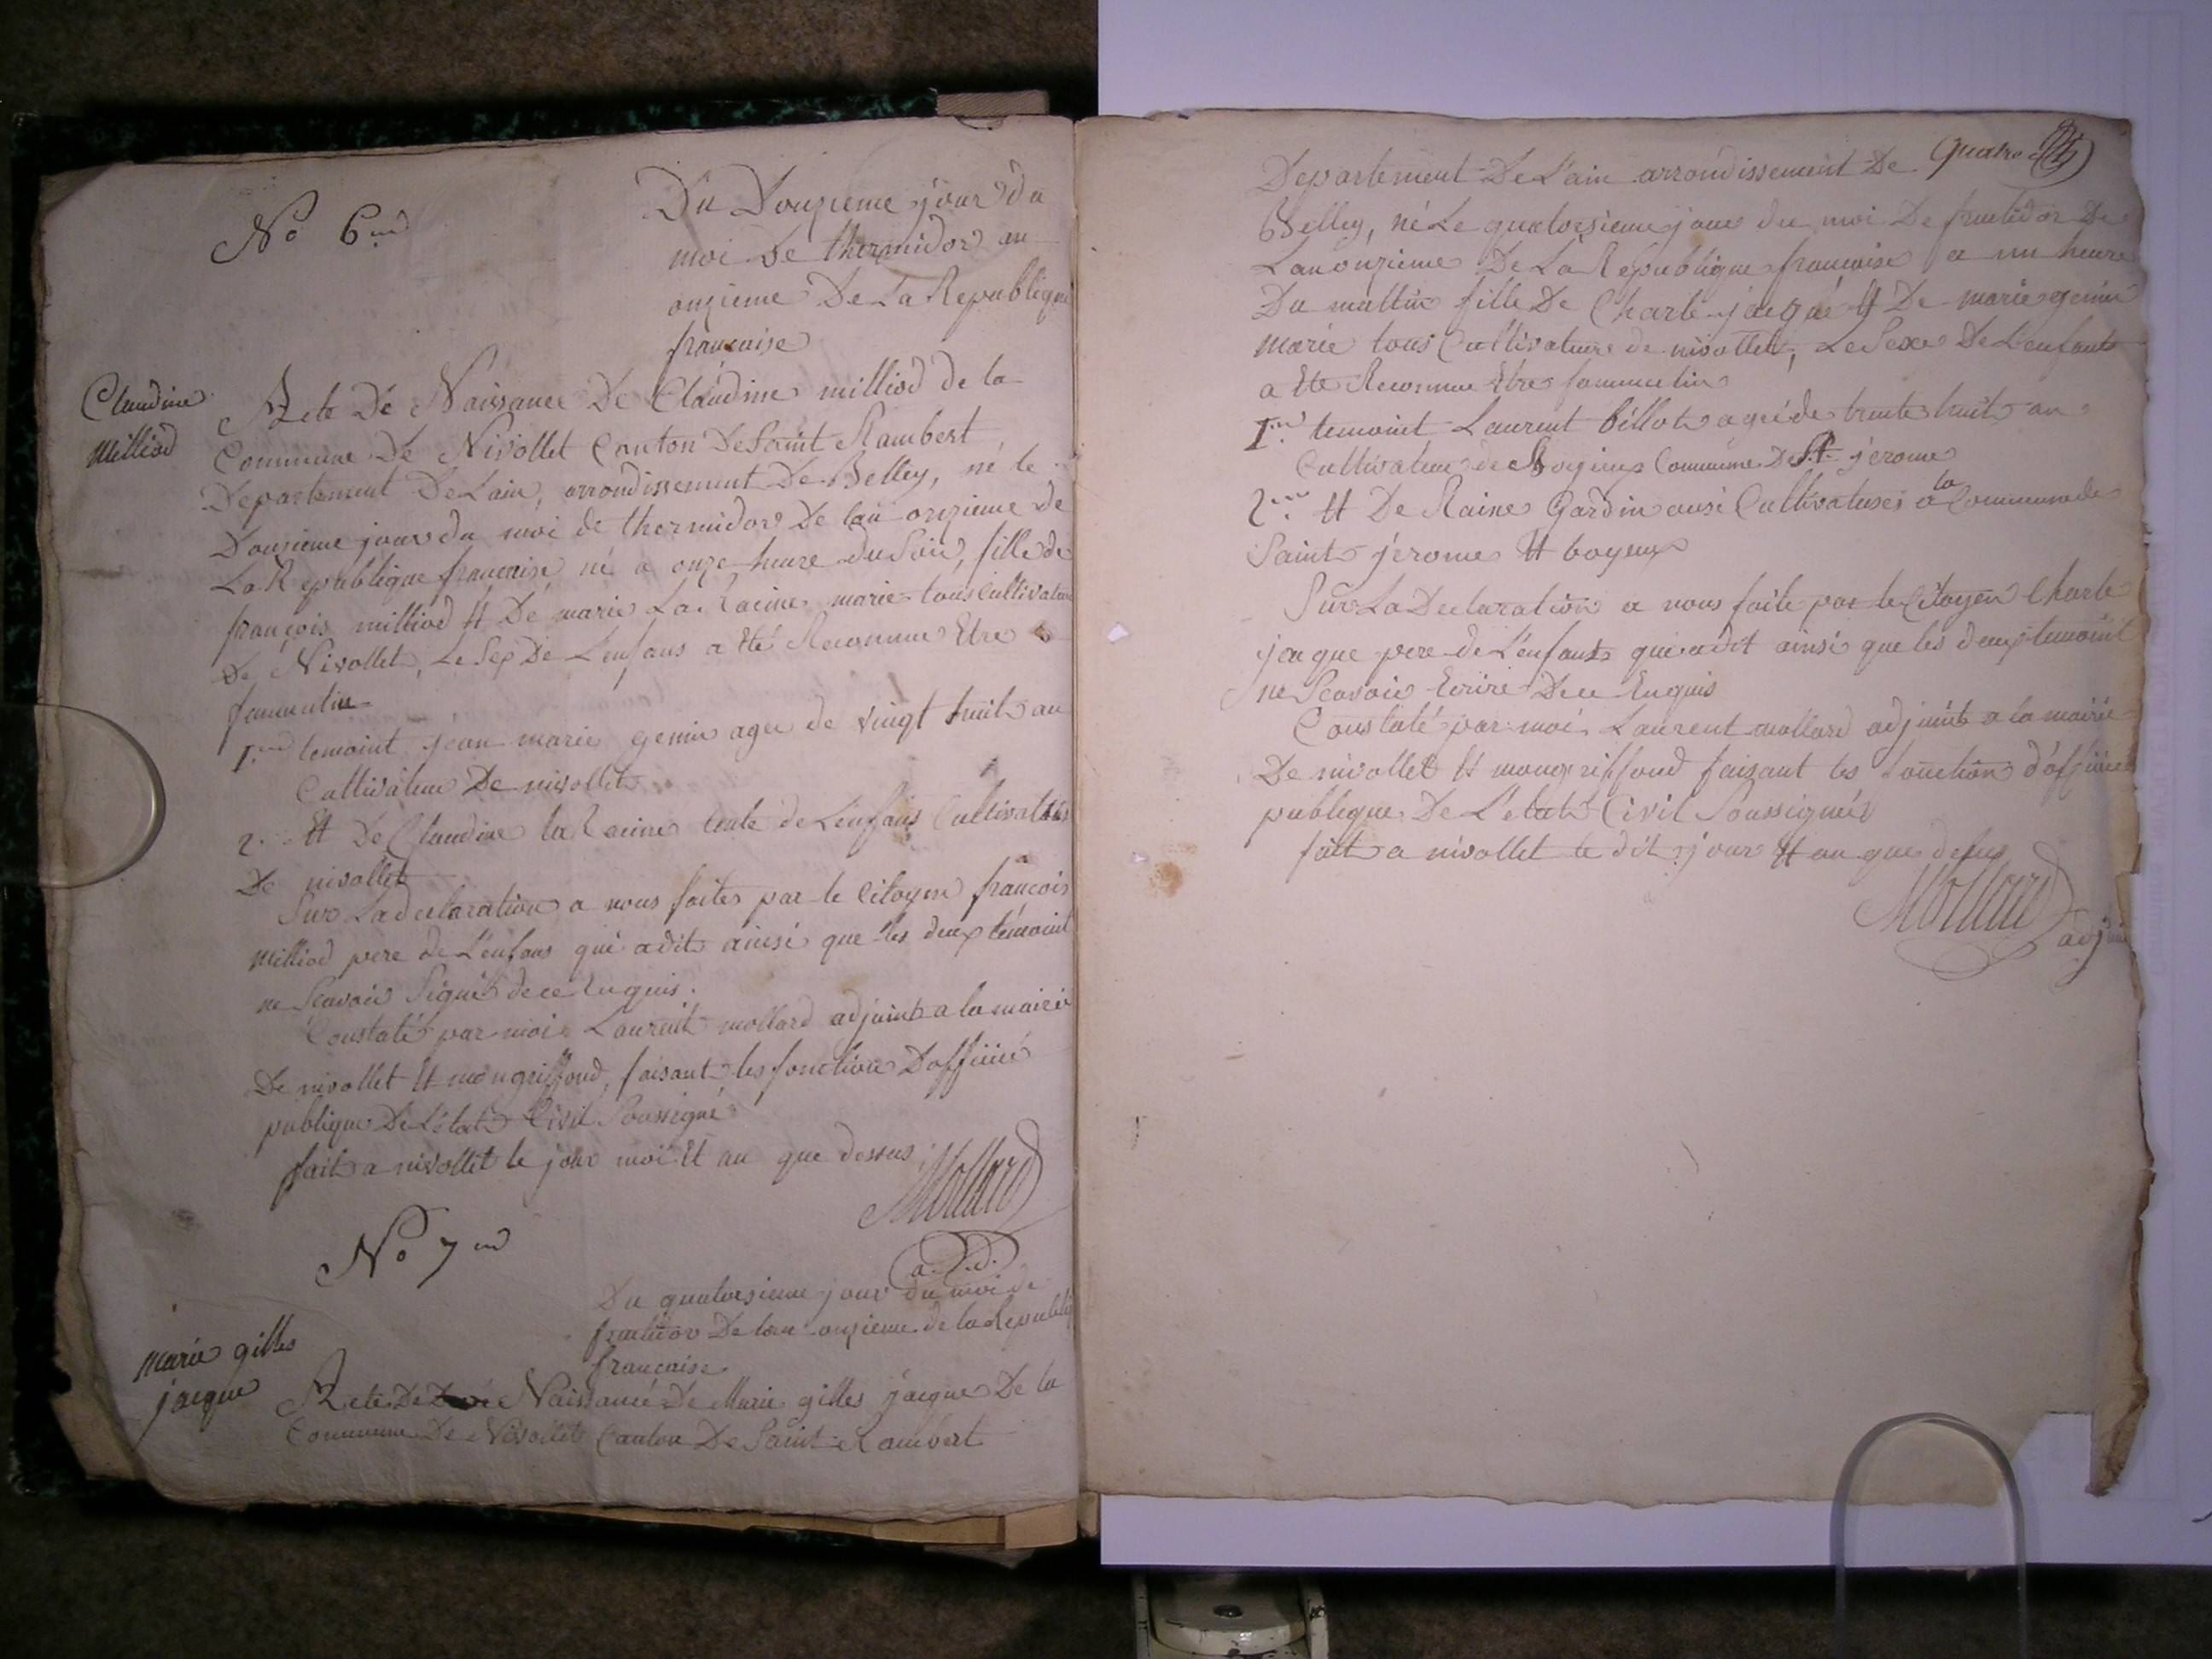 No 6me
Du Douzieme jour du
moi De thermidor an
onzieme De La Republique
francaise
Claudine
Milliod
Acte De Naissance De Claudine milliod de la
Commune De Nivollet Canton De Saint Rambert
Departement De Lain, arrondissement De Belley, né le
Douzieme jour du moi de thermidor De lan onzieme de
La Republique francaise né a onze heure du Soir, fille de
françois milliod Et De marie La Racine marie tous Cultivateur
De Nivollet, Le Sex De L'enfans a Eté Reconnue Etre
femmentin
1.er temoint jean marie genin agee de vingt huit an
Cultivateur De nivollet
2. Et De Claudine la Racine tente de L'enfans Cultivatrises
De nivollet
Sur La declaration a nous faites par le Citoyen francois
Milliod pere de L'enfans qui adit ainsi que les deux temoint
ne Scavoir Signé de ce Enquis.
Constaté par moi Laurent mollard adjoint a la mairie
De nivollet Et mongriffond, faisant les fonction Dofficié
publique De L'etat Civil Soussigné
fait a nivollet le jour moi Et an que dessus
Mollard
a.d.
No 7me
Du quatorsieme jour du moi de
fructidor De lan onzieme de la Republiq
francaise
Marie gilles
jacque
Acte De Naissance De Marie gilles jacque De la
Commune De Nivollet Canton De Saint Rambert
Quatre
Departement De L'ain arrondissement De
Belley, né Le quatorsieme jour du moi De fructidor De
Lan onzieme De La Republique francaise a un heure
Du mattin fille De Charle jacque Et De marie genin
Marie tous Cultivateure de nivollet, Le Sexe De L'enfants
a Eté Reconnue Etre fammentin
1.er temoint Laurent billot agé de trante huit an
Cultivateur de Boyeux Commune De St. jérome
2.me Et De Raine Gardin ausi Cultivatuses a la Commune de
Saint jérome Et boyeux
Sur La Declaration a nous faite par le Citoyen Charle
jacque pere de L'enfants qui adit ainsi que les deux temoint
ne Scavoir Ecrire De ce Enquis
Constaté par moi Laurent mollard adjoint a la mairie
De nivollet Et mongriffond faisant les fonction d'officié
publique De L'etat Civil Soussignés
fait a nivollet le dit jour Et an que desus
Mollard
adjoint